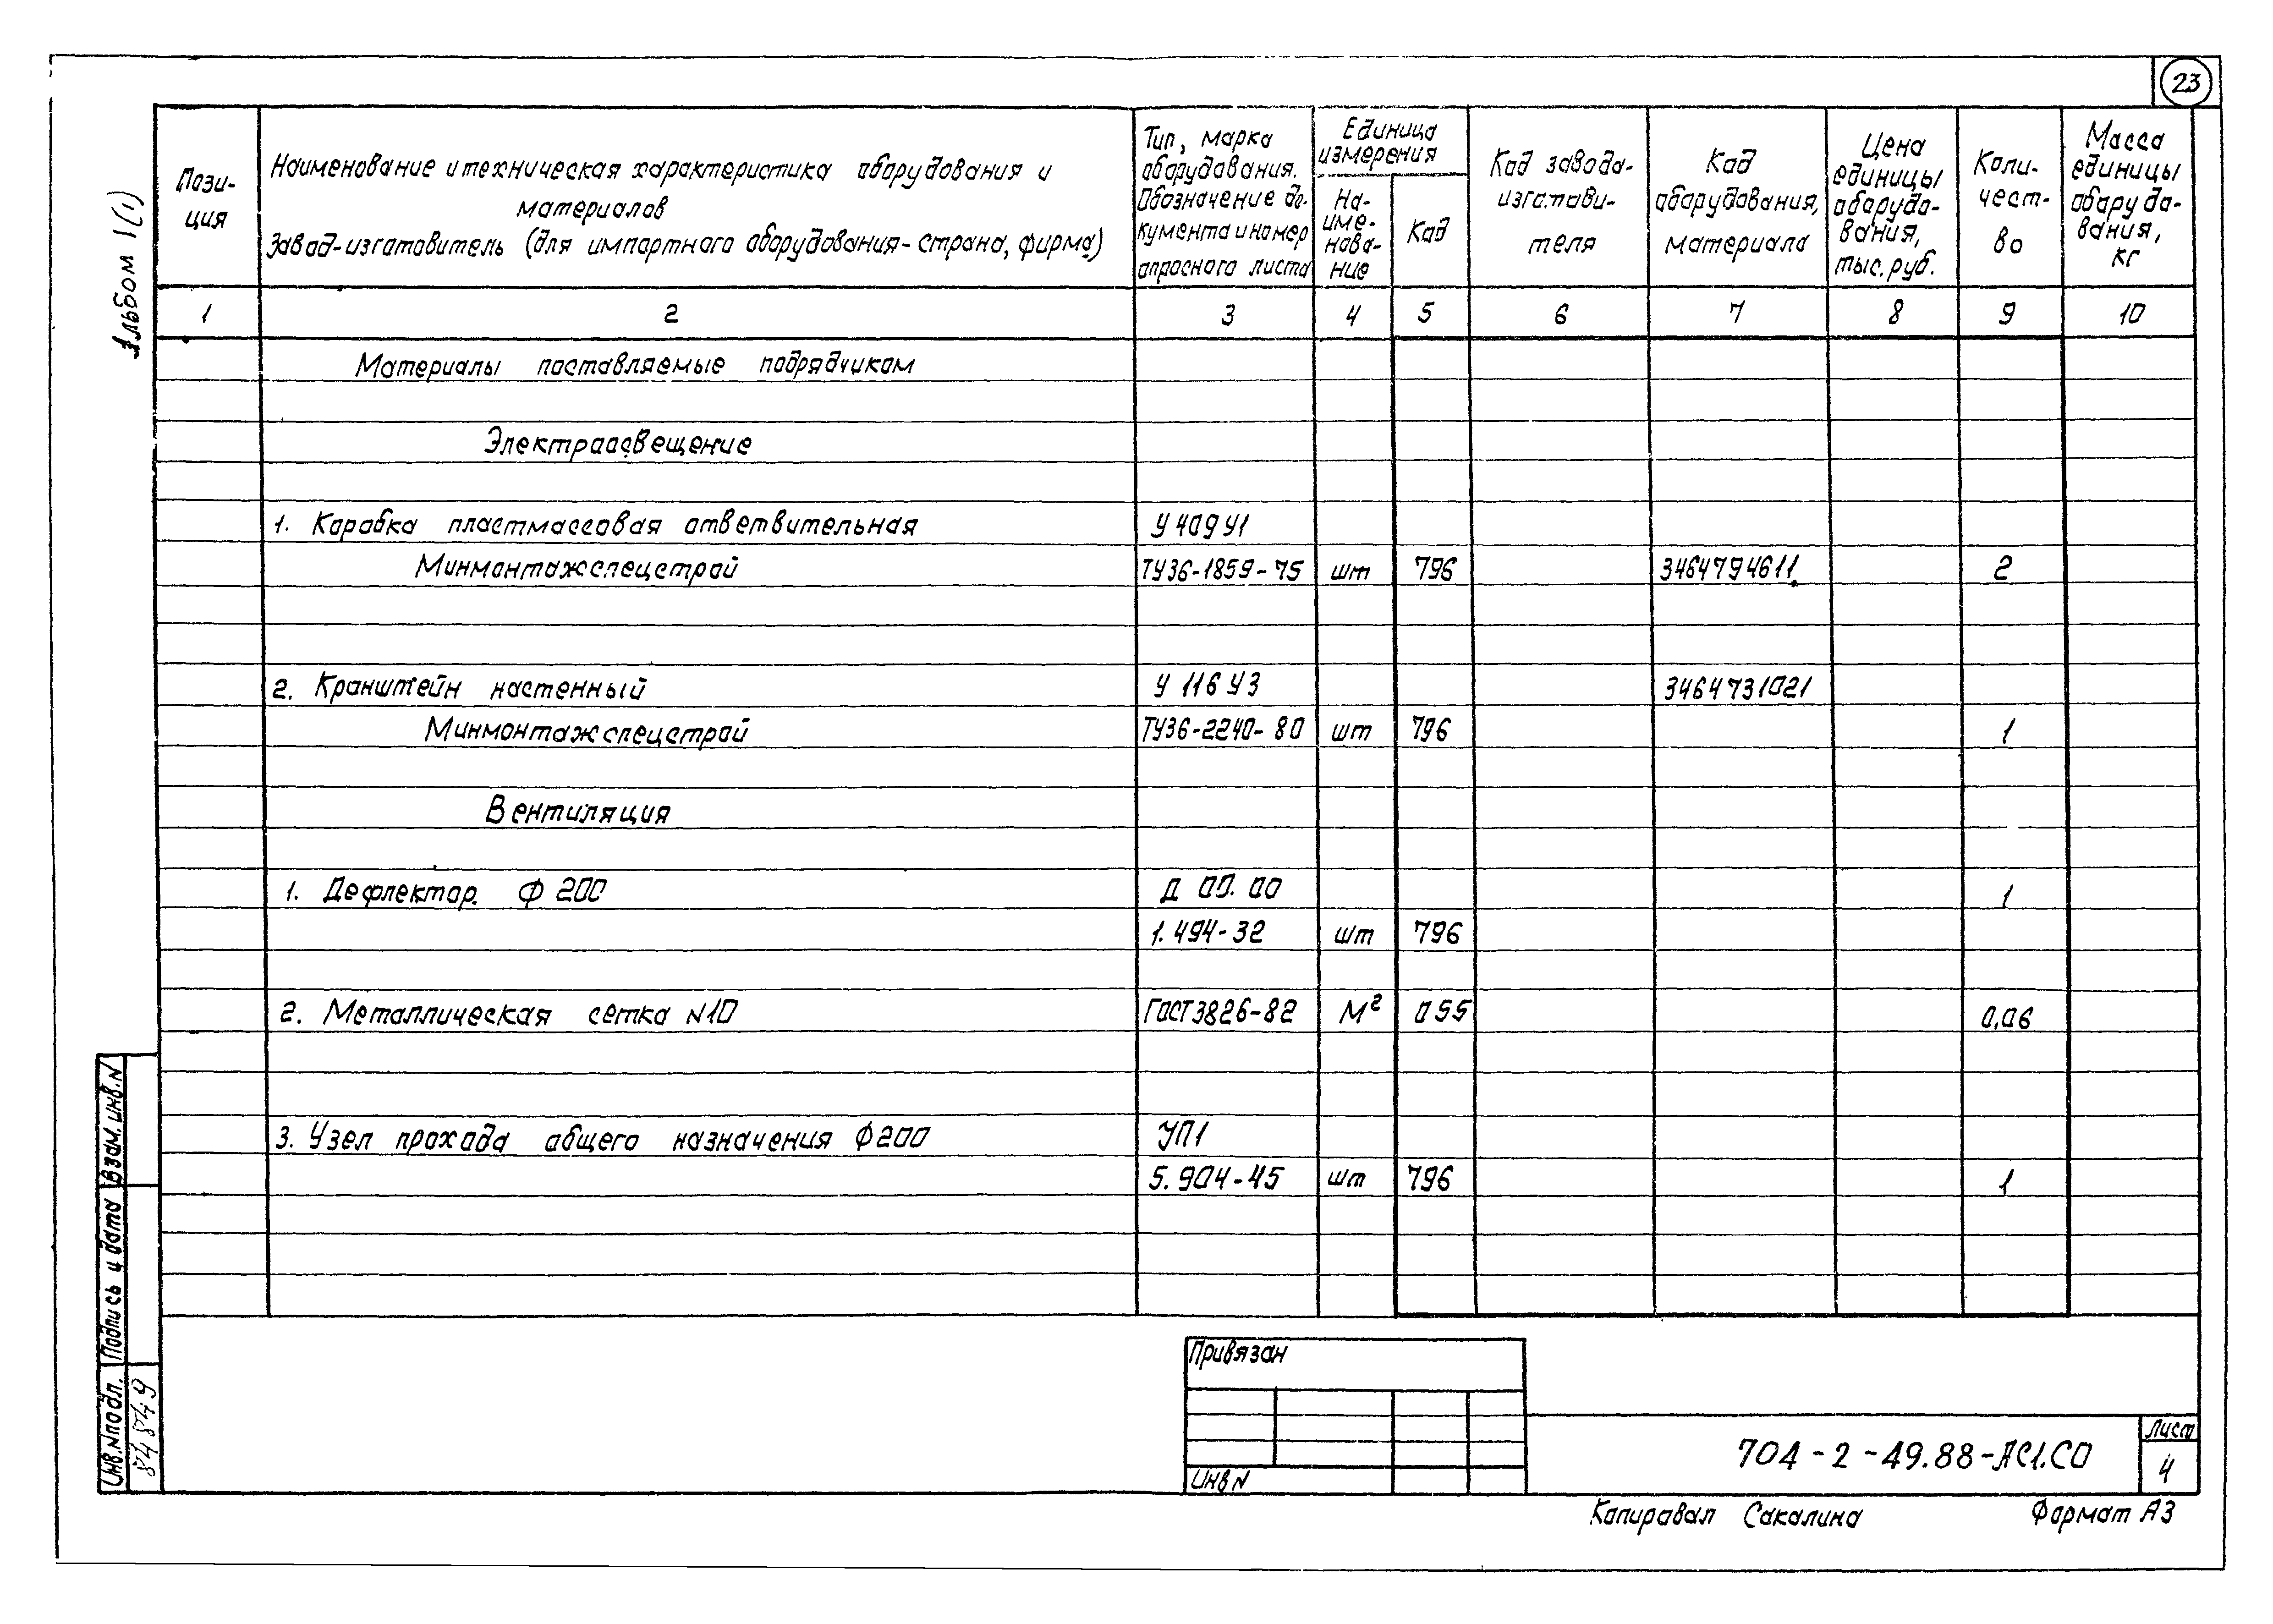 23
Альбом 1(1)
Пози-
ция
Наименование и техническая характеристика оборудования и
материалов
Завод-изготовитель (для импортного оборудования-страна, фирма)
Тип, марка
оборудования.
Обозначение до-
кумента и номер
опросного листа
Единица
измерения
На-
име-
нова-
ние
Код
Код завода-
изготови-
теля
Код
оборудования,
материала
Цена
единицы
оборудо-
вания,
тыс. руб.
Коли-
чест-
во
Масса
единицы
оборудо-
вания,
кг
1 2 3 4 5 6 7 8 9 10
Материалы поставляемые подрядчиком
Электроосвещение
1. Коробка пластмассовая ответвительная У 409 У1
Минмонтажспецстрой ТУ36-1859-75 шт 796 3464794611 2
2. Кранштейн настенный У 116 У3 3464731021
Минмонтажспецстрой ТУ36-2240-80 шт 796 1
Вентиляция
1. Дефлектор. Ф 200 Д 00.00 1
1.494-32 шт 796
2. Металлическая сетка N10 ГОСТ3826-82 М² 055 0,06
3. Узел прохода общего назначения Ф200 УП1
5.904-45 шт 796 1
Взам. инв. N
Подпись и дата
Инв. N подл.
Привязан
Инв N
704-2-49.88-АС1.СО
Лист
4
Копировал Сакалина Формат А3